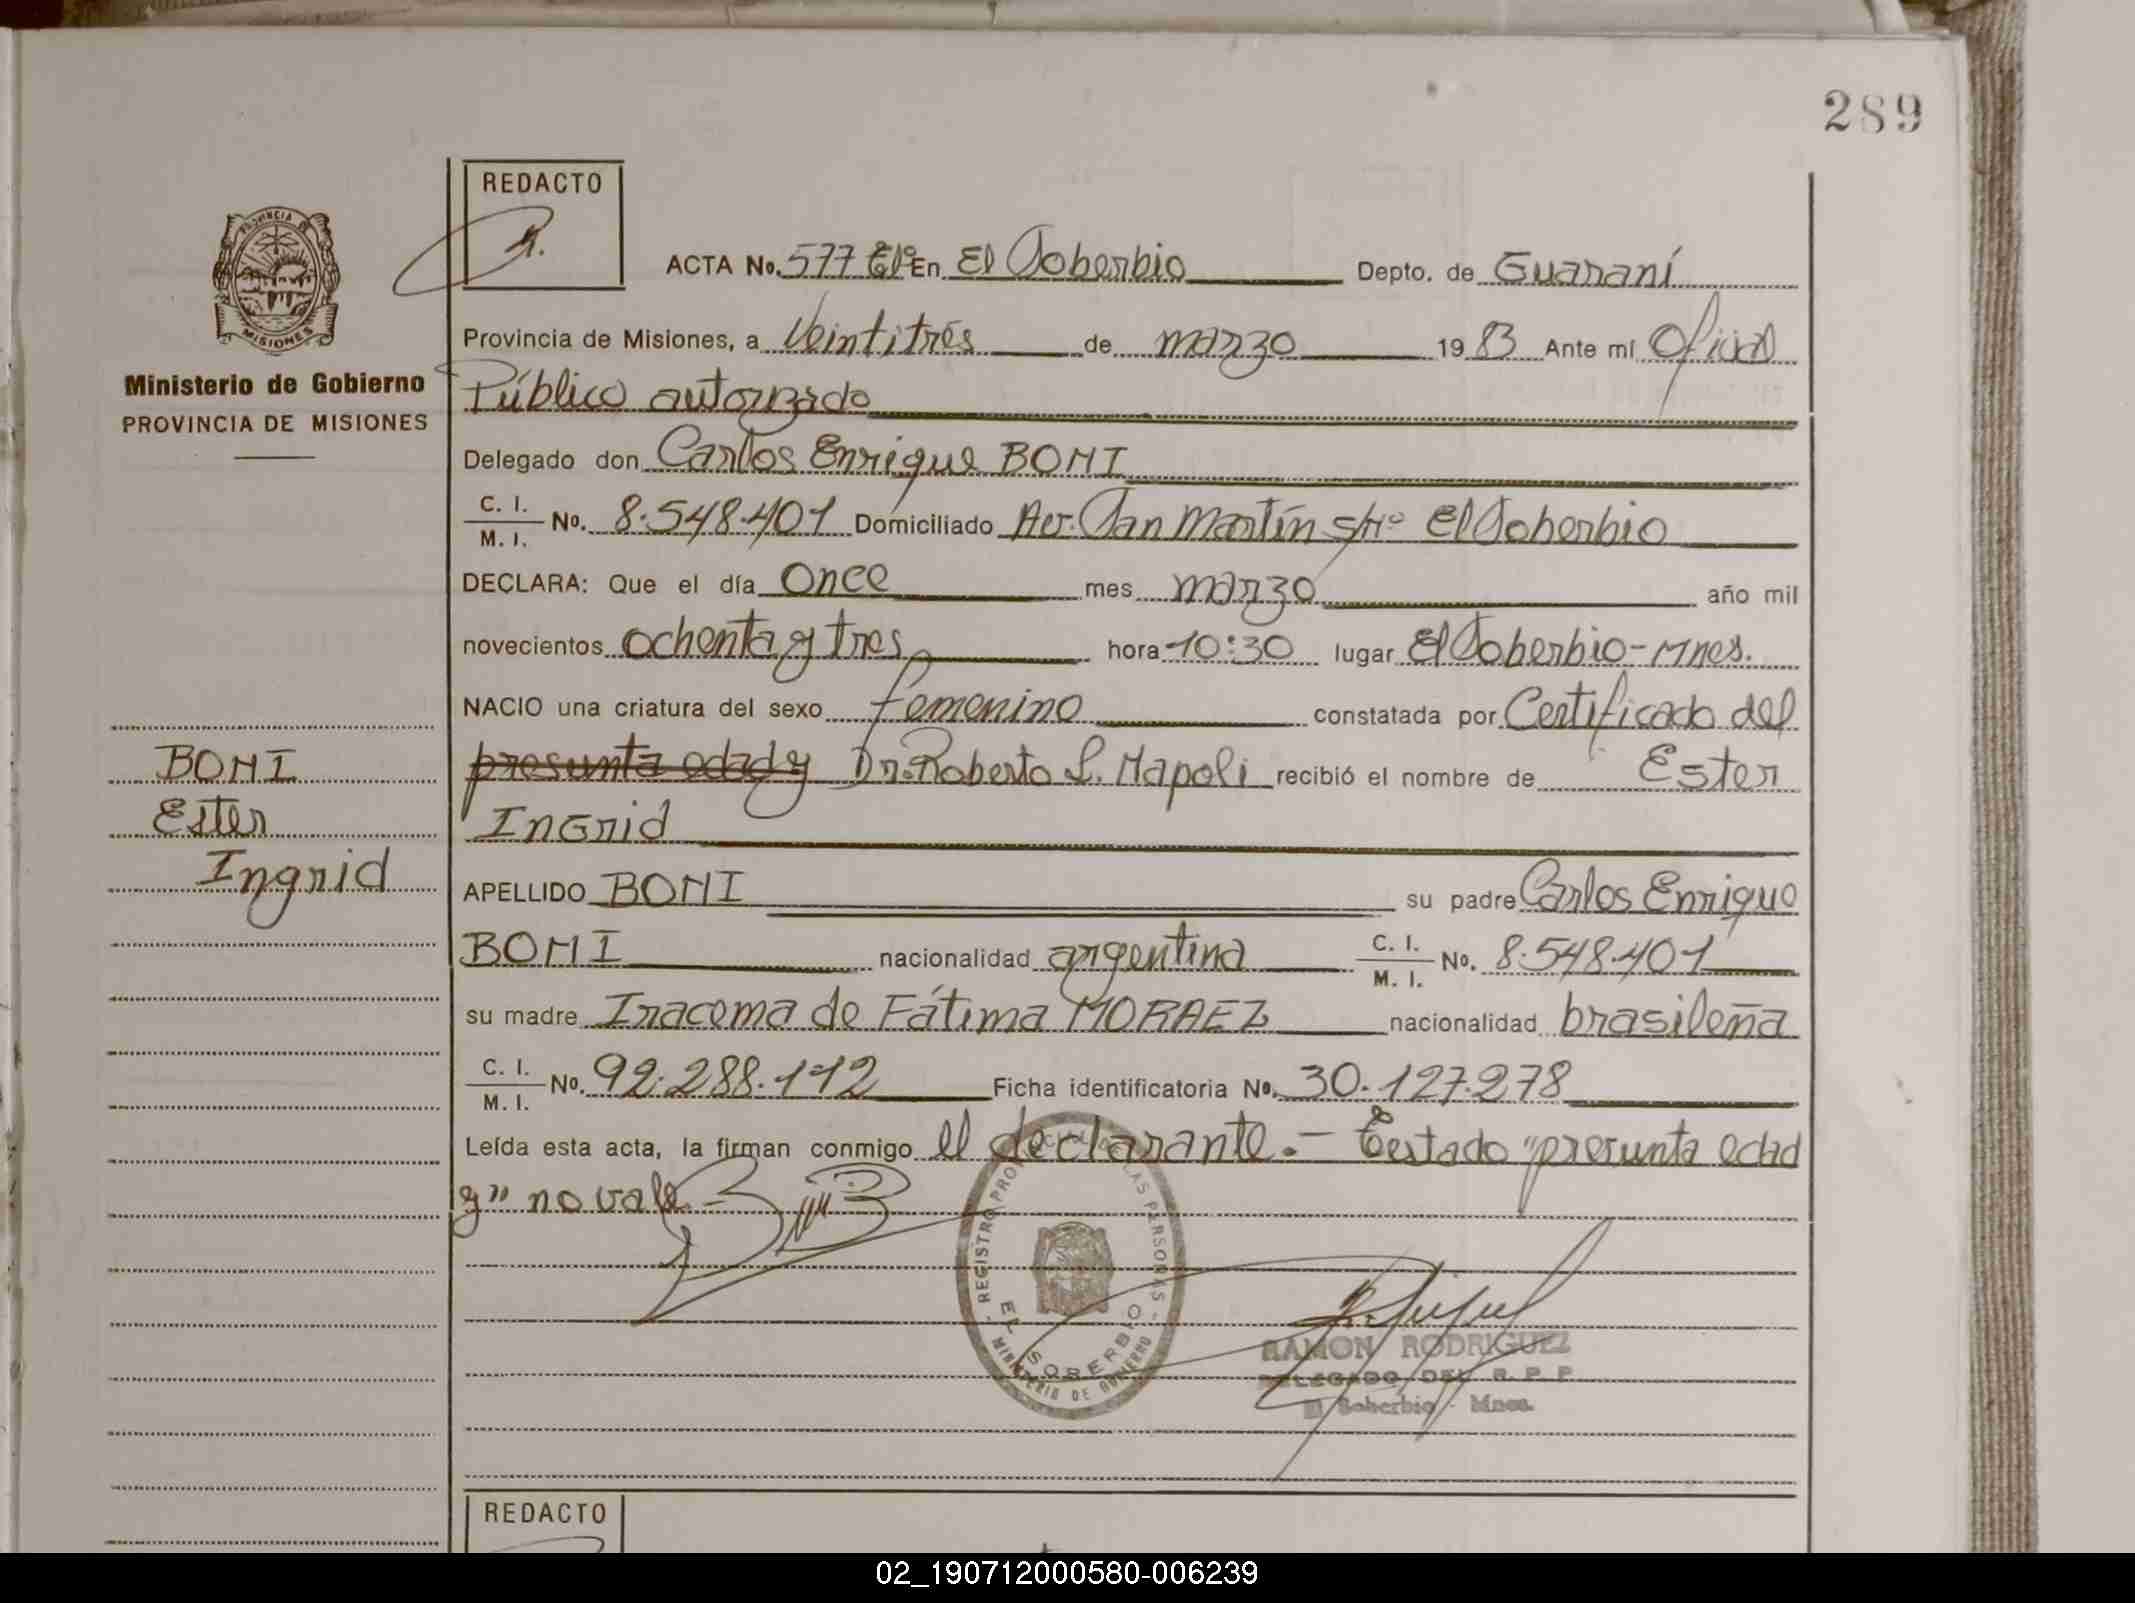 289
REDACTO
ACTA No. 577 En El Soberbio Depto. de Guaraní
Provincia de Misiones, a Veintitrés de marzo 1983 Ante mí Oficial
Público autorizado
Ministerio de Gobierno
PROVINCIA DE MISIONES
Delegado don Carlos Enrique BONI
C. I. M. I. No. 8.548.401 Domiciliado Av. San Martín s/nº El Soberbio
DECLARA: Que el día Once mes marzo año mil
novecientos ochenta y tres hora 10:30 lugar El Soberbio-Mnes.
NACIO una criatura del sexo femenino constatada por Certificado del
presunta edad y Dr. Roberto L. Napoli recibió el nombre de Ester
Ingrid
BONI
Ester
Ingrid
APELLIDO BONI su padre Carlos Enrique
BONI nacionalidad argentina C. I. M. I. No. 8.548.401
su madre Iracema de Fátima MORAEZ nacionalidad brasileña
C. I. M. I. No. 92.288.112 Ficha identificatoria No. 30.127.278
Leída esta acta, la firman conmigo el declarante.- Testado "presunta edad
y" no vale.-
REGISTRO PROVINCIAL DE LAS PERSONAS - MINISTERIO DE GOBIERNO
EL SOBERBIO
RAMON RODRIGUEZ
DELEGADO DEL R. P. P
El Soberbio - Mnes.
REDACTO
02_190712000580-006239